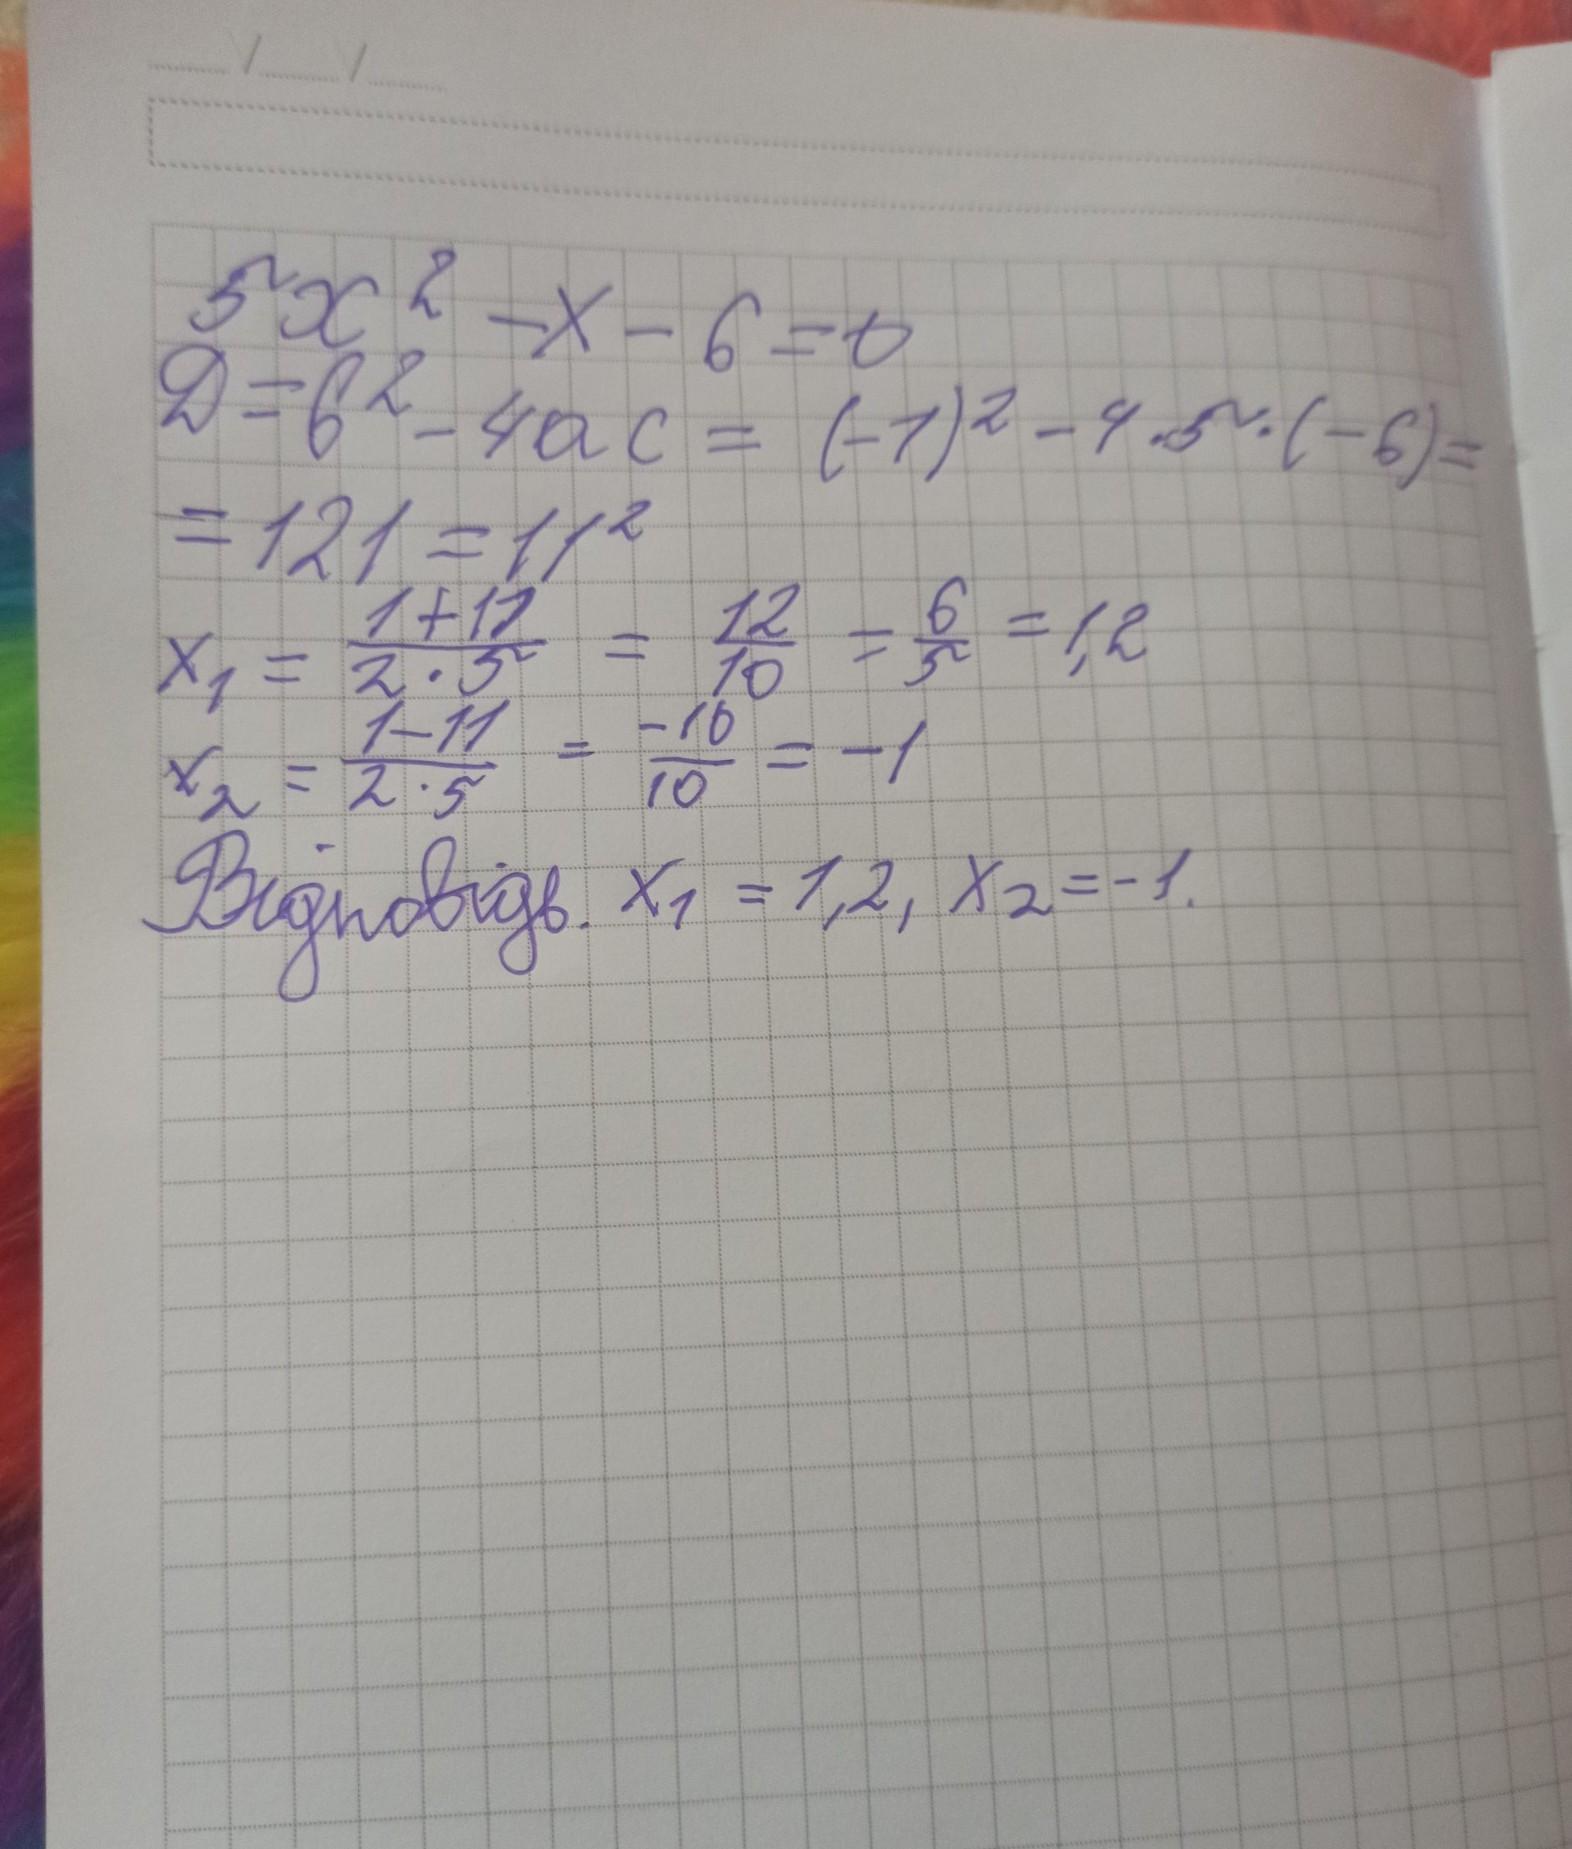 5x² - x - 6 = 0
D = b² - 4ac = (-1)² - 4 · 5 · (-6) =
= 121 = 11²
x₁ = (1+11)/(2·5) = 12/10 = 6/5 = 1,2
x₂ = (1-11)/(2·5) = -10/10 = -1
Відповідь. x₁ = 1,2, x₂ = -1.